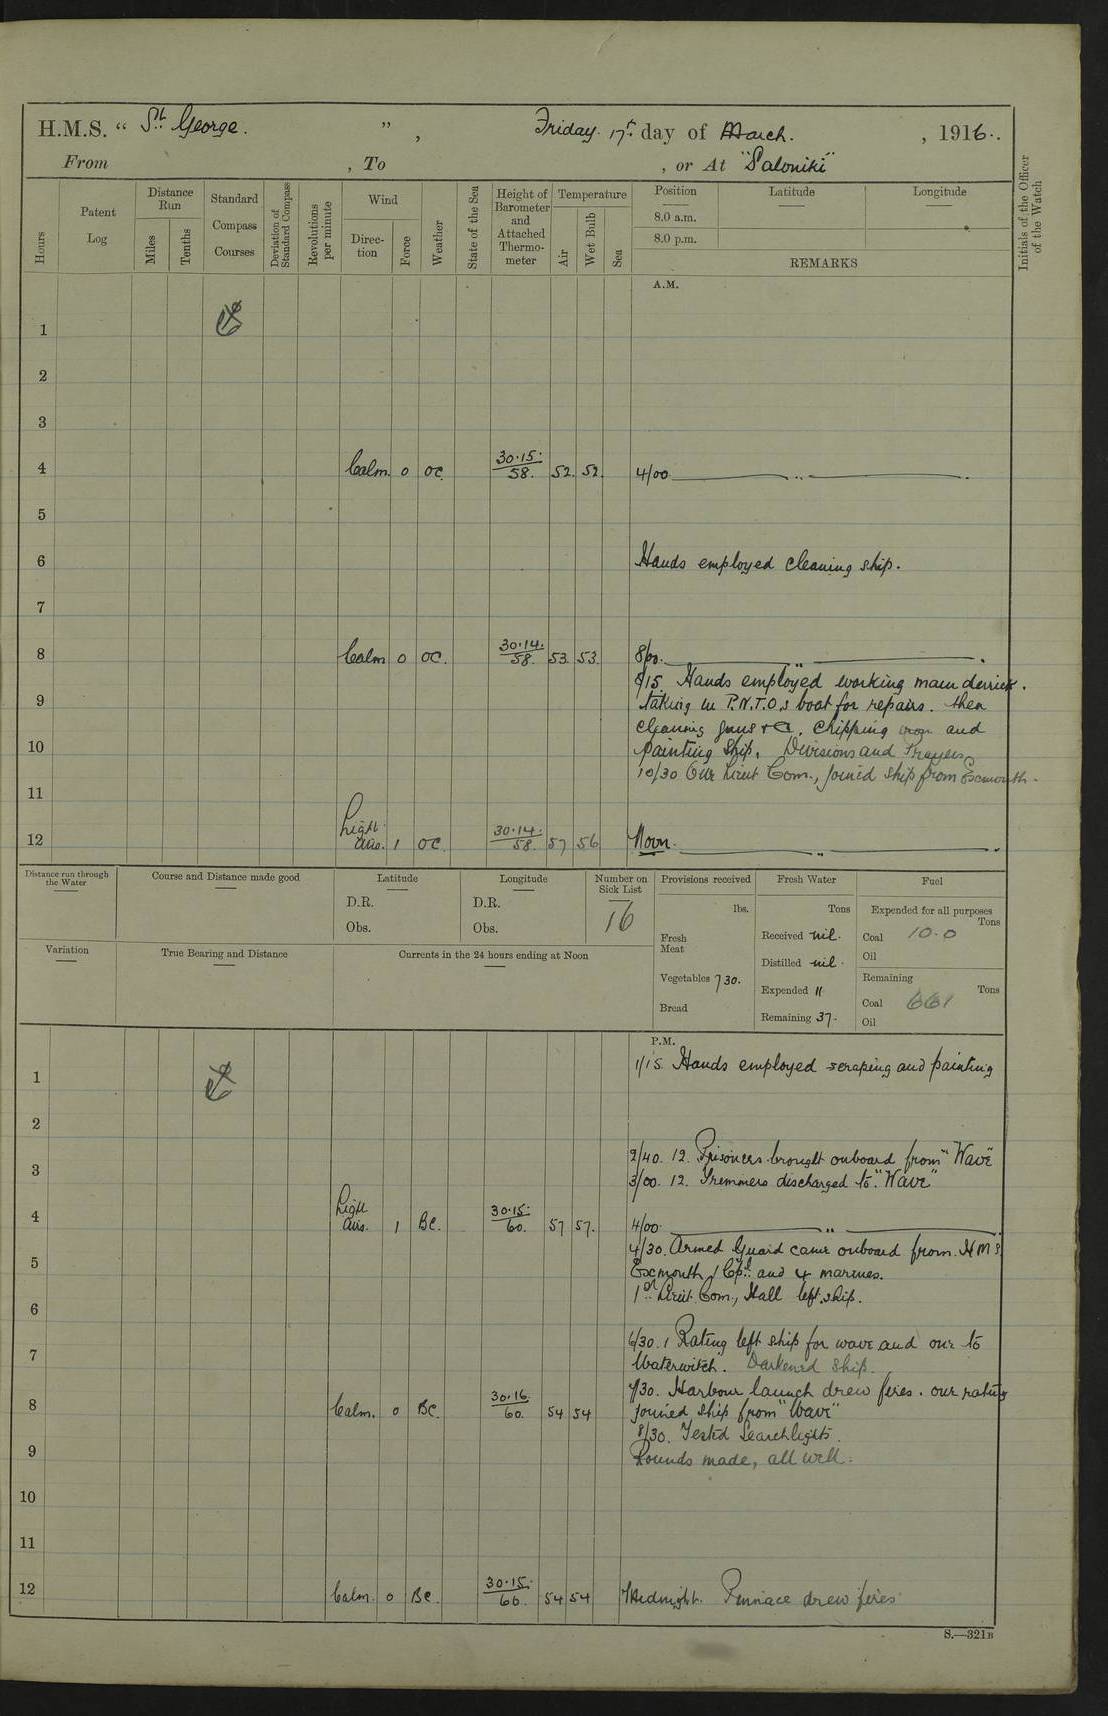 H.M.S. “ St. George. ” , Friday. 17th day of March. , 1916.
From , To , or At "Saloniki"
Hours
Patent Log
Distance Run
Miles
Tenths
Standard Compass Courses
Deviation of Standard Compass
Revolutions per minute
Wind
Direc-tion
Force
Weather
State of the Sea
Height of Barometer and Attached Thermo-meter
Temperature
Air
Wet Bulb
Sea
Position Latitude Longitude
8.0 a.m.
8.0 p.m.
REMARKS
Initials of the Officer of the Watch
A.M.
1
2
3
4 Calm. 0 OC. 30.15. 58. 52. 52. 4/00 "
5
6 Hands employed cleaning ship.
7
8 Calm 0 OC. 30.14. 58. 53. 53. 8/00. "
8/15. Hands employed working main derrick.
9 taking in P.N.T.O.s boat for repairs. then
cleaning guns &c. chipping iron and
10 painting ship. Divisions and Prayers
10/30 One Lieut Com., joined ship from Exmouth.
11
12 Light airs. 1 OC. 30.14. 58. 57 56 Noon. "
Distance run through the Water
Course and Distance made good
Latitude
D.R.
Obs.
Longitude
D.R.
Obs.
Number on Sick List
16
Provisions received
lbs.
Fresh Meat
Vegetables 730.
Bread
Fresh Water
Tons
Received nil.
Distilled nil.
Expended 11
Remaining 37.
Fuel
Expended for all purposes
Tons
Coal 10.0
Oil
Remaining
Tons
Coal 661
Oil
Variation
True Bearing and Distance
Currents in the 24 hours ending at Noon
P.M.
1 1/15. Hands employed scraping and painting
2
2/40. 12. Prisoners brought onboard from "Wave"
3 3/00. 12. Trimmers discharged to "Wave"
4 Light airs. 1 BC. 30.15. 60. 57 57. 4/00. "
4/30. Armed Guard came onboard from H M S
5 Exmouth 1 Cpl. and 4 marines.
6 1st Lieut. Com., Hall left ship.
6/30. 1 Rating left ship for wave and one to
7 Waterwitch. Darkened ship.
7/30. Harbour launch drew fires. one rating
8 Calm. 0 BC. 30.16. 60. 54 54 joined ship from "Wave"
8/30. Tested Searchlights.
9 Rounds made, all well.
10
11
12 Calm. 0 BC. 30.15. 60. 54 54 Midnight. Pinnace drew fires
S.—321B